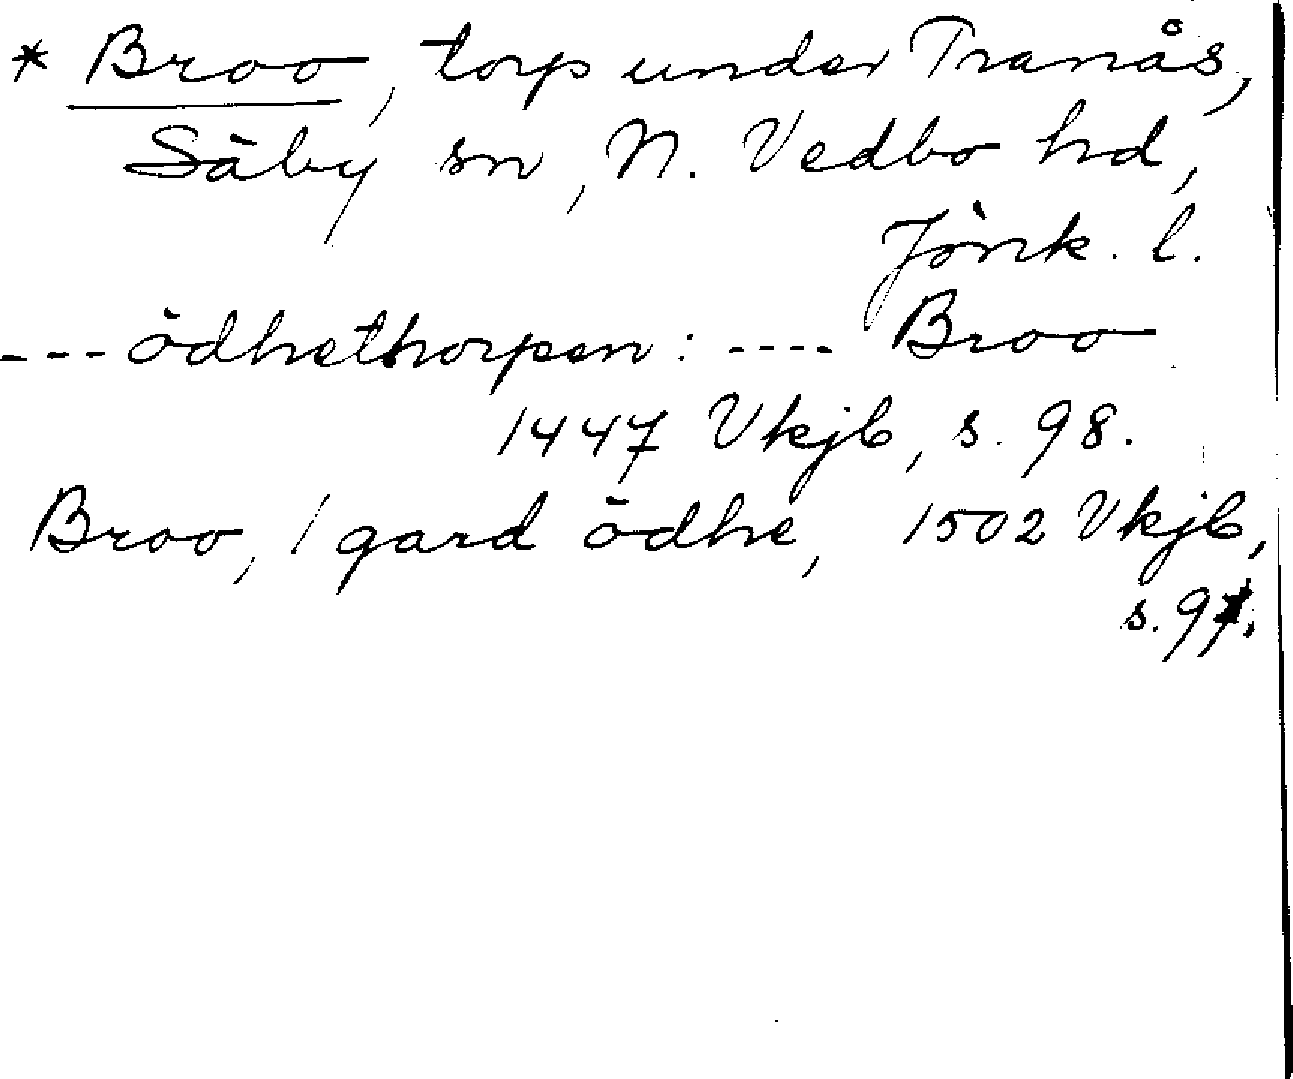 * Broo, torp under Tranås,
Säby sn, N. Vedbo hd,
Jönk. l.
--- ödhethorpen: ---- Broo
1447 Vkjb, s. 98.
Broo, 1 gard ödhe, 1502 Vkjb,
s. 97.